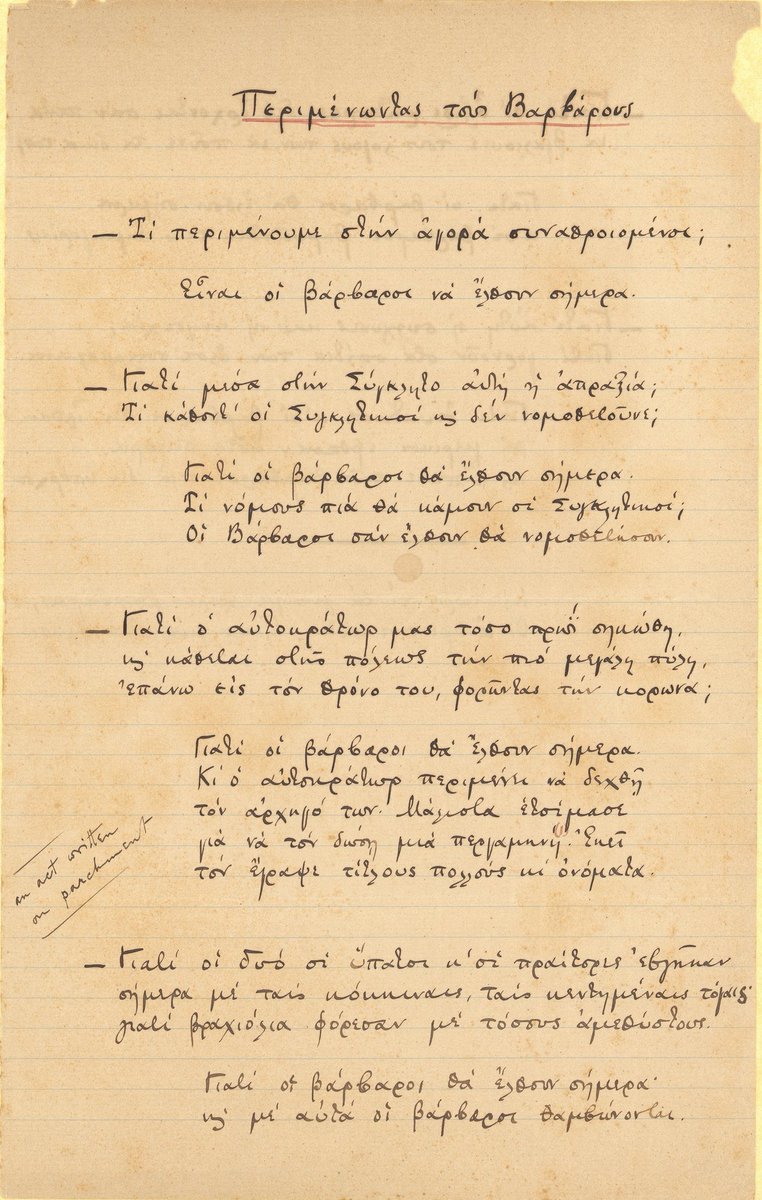 Περιμένωντας τούς Βαρβάρους
— Τί περιμένουμε στήν ἀγορά συναθροισμένοι;
Εἶναι οἱ βάρβαροι νά ἔλθουν σήμερα.
— Γιατί μέσα στήν Σύγκλητο αὐτή ἡ ἀπραξία;
Τί κάθοντ' οἱ Συγκλητικοί κ̕ δέν νομοθετοῦνε;
Γιατί οἱ βάρβαροι θά ἔλθουν σήμερα.
Τί νόμους πιά θά κάμουν οἱ Συγκλητικοί;
Οἱ Βάρβαροι σάν ἔλθουν θά νομοθετήσουν.
— Γιατί ὁ αὐτοκράτωρ μας τόσο πρωΐ σηκώθη,
κ̕ κάθεται στῆς πόλεως τήν πιό μεγάλη πύλη,
ἐπάνω εἰς τόν θρόνο του, φορῶντας τήν κορώνα;
Γιατί οἱ βάρβαροι θά ἔλθουν σήμερα.
Κι ὁ αὐτοκράτωρ περιμένει νά δεχθῇ
τόν ἀρχηγό των. Μάλιστα ἑτοίμασε
γιά νά τόν δώσῃ μιά περγαμηνή. Ἐκεῖ
τόν ἔγραψε τίτλους πολλούς κι ὀνόματα.
an act written
on parchment
— Γιατί οἱ δυό οἱ ὕπατοι κ' οἱ πραίτορες ἐβγῆκαν
σήμερα μέ ταίς κόκκιναις, ταίς κεντημέναις τόγαις·
γιατί βραχιόλια φόρεσαν μέ τόσους ἀμεθύστους.
Γιατί οἱ βάρβαροι θά ἔλθουν σήμερα·
κ̕ μέ αὐτά οἱ βάρβαροι θαμβώνονται.